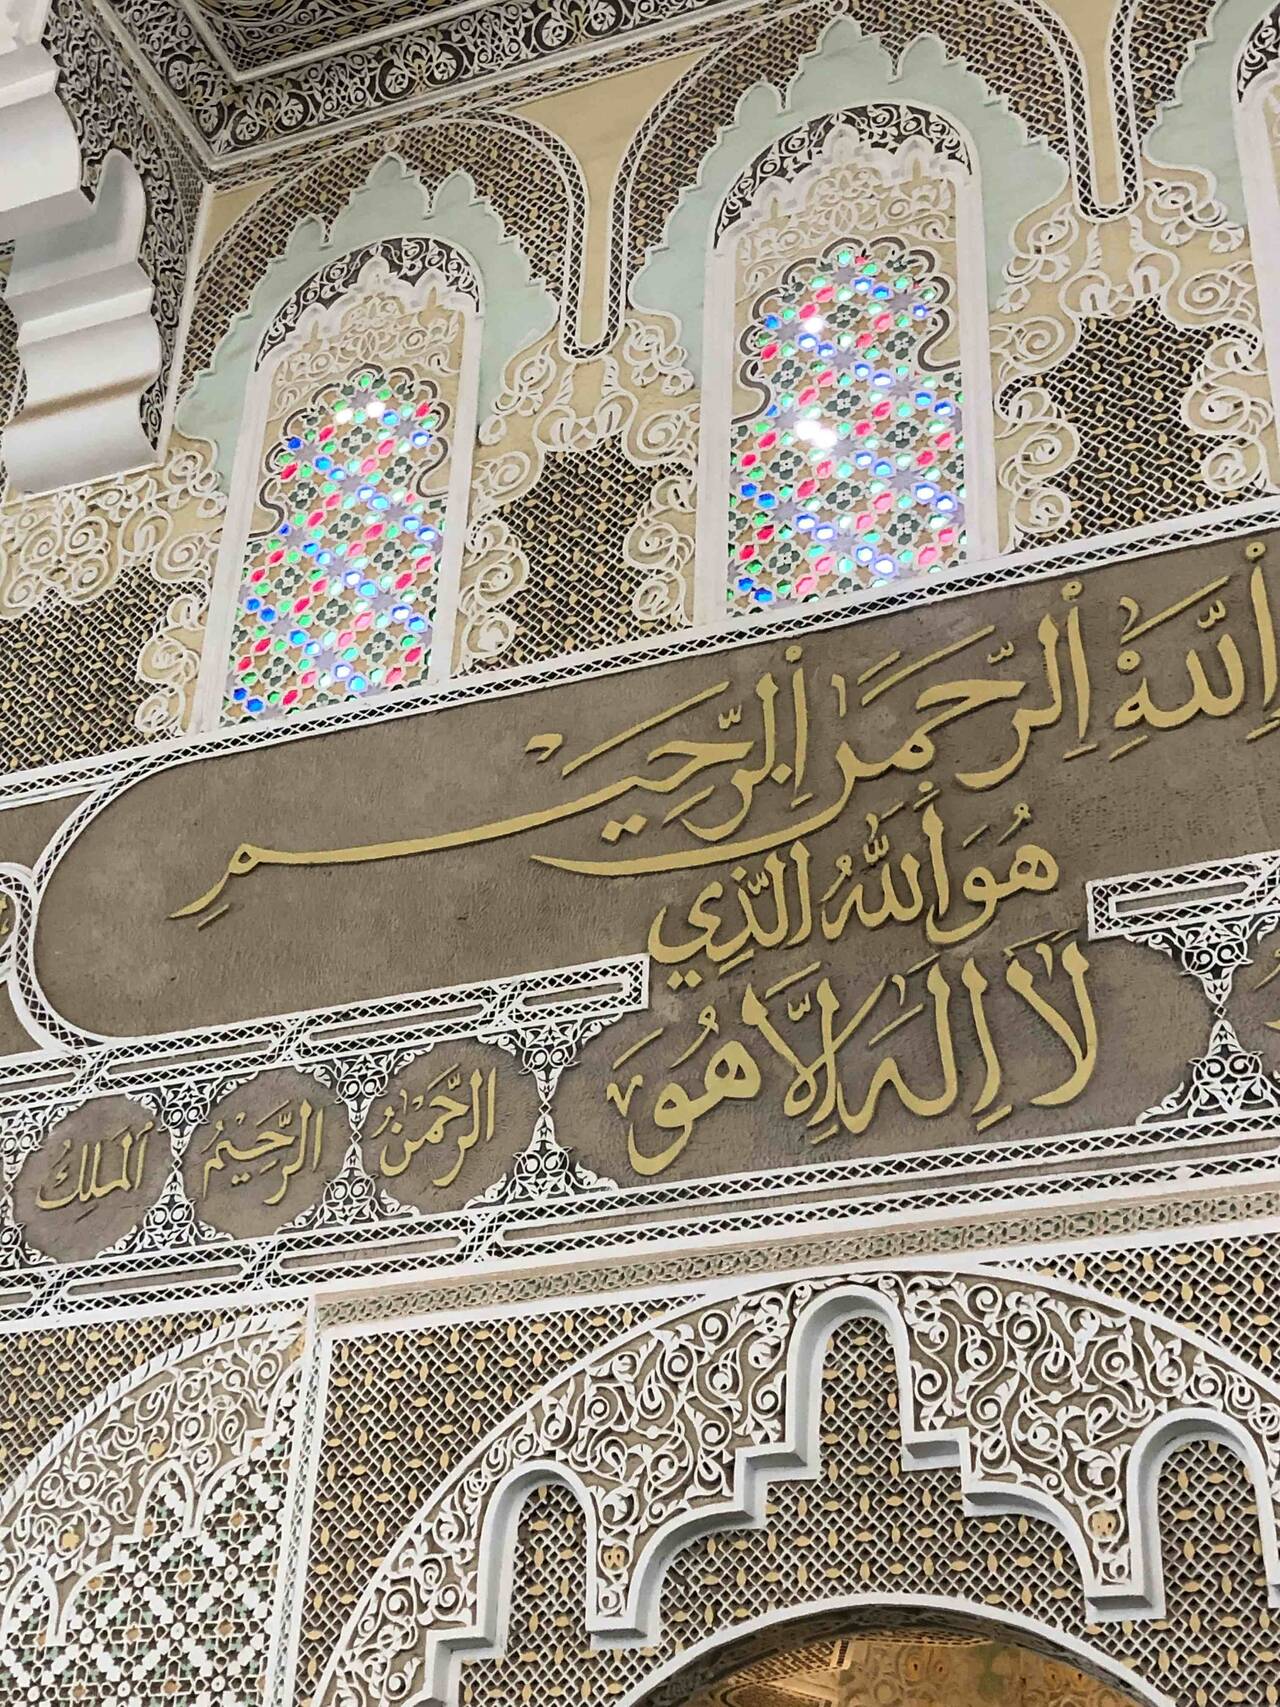 اللَّهِ الرَّحْمَنِ الرَّحِيمِ
هُوَ اللَّهُ الَّذِي
لَا إِلَهَ إِلَّا هُوَ
الرَّحْمَنُ الرَّحِيمُ الْمَلِكُ